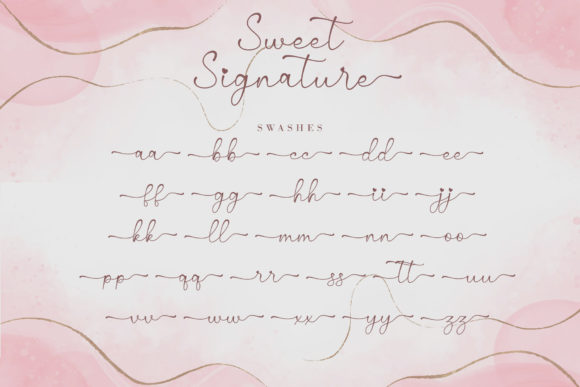 Sweet
Signature
SWASHES
aa bb cc dd ee
ff gg hh ii jj
kk ll mm nn oo
pp qq rr ss tt uu
vv ww xx yy zz